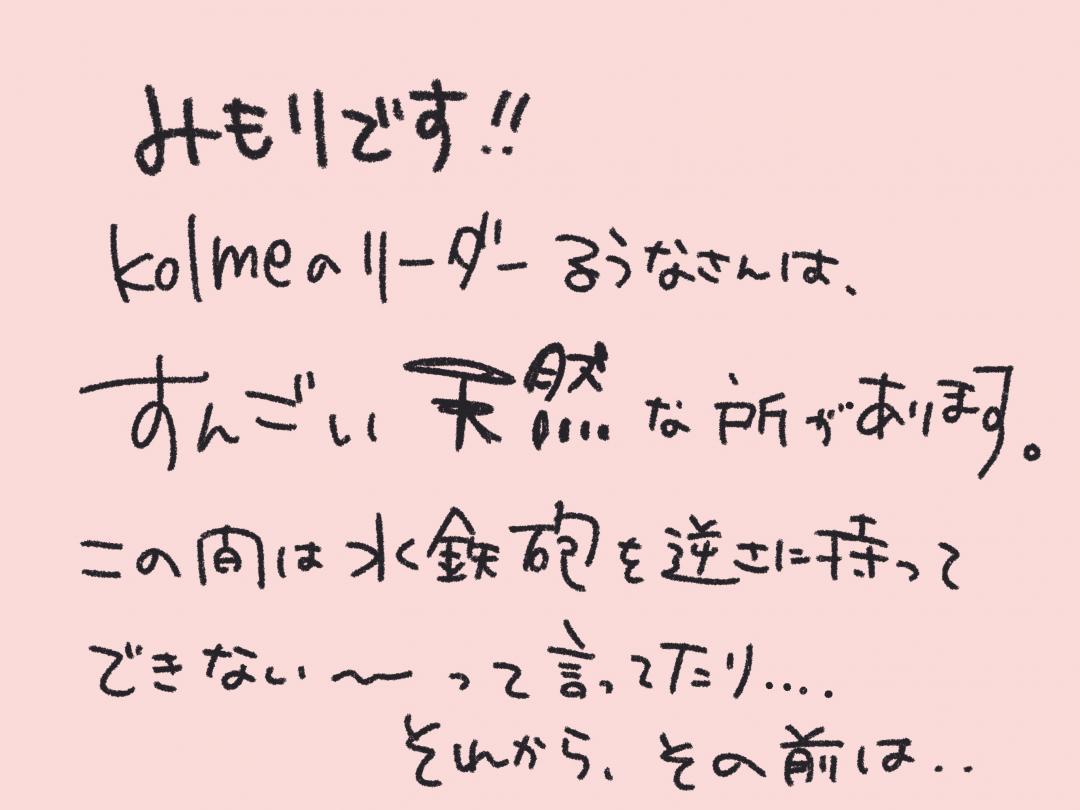 みもりです!!
kolmeのリーダーるうなさんは、
すんごい天然な所があります。
この間は水鉄砲を逆さに持って
できない〜って言ってたり....
それから、その前は..